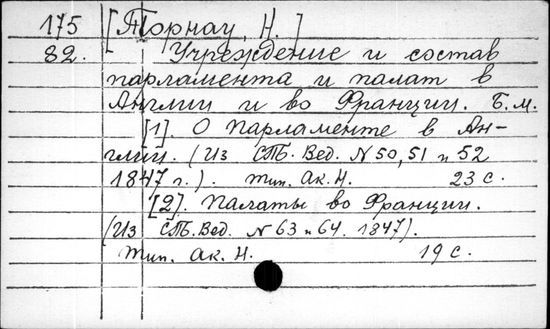 175 [Торнау, Н.]
82. Учреждение и состав
парламента и палат в
Англии и во Франции. Б.м.
[1]. О Парламенте в Ан-
глии. (Из СПБ. Вед. N 50, 51 и 52
1847 г.). Тип. Ак. Н. 23 с.
[2]. Палаты во Франции.
(Из СПБ. Вед. N 63 и 64. 1847).
Тип. Ак. Н. 19 с.